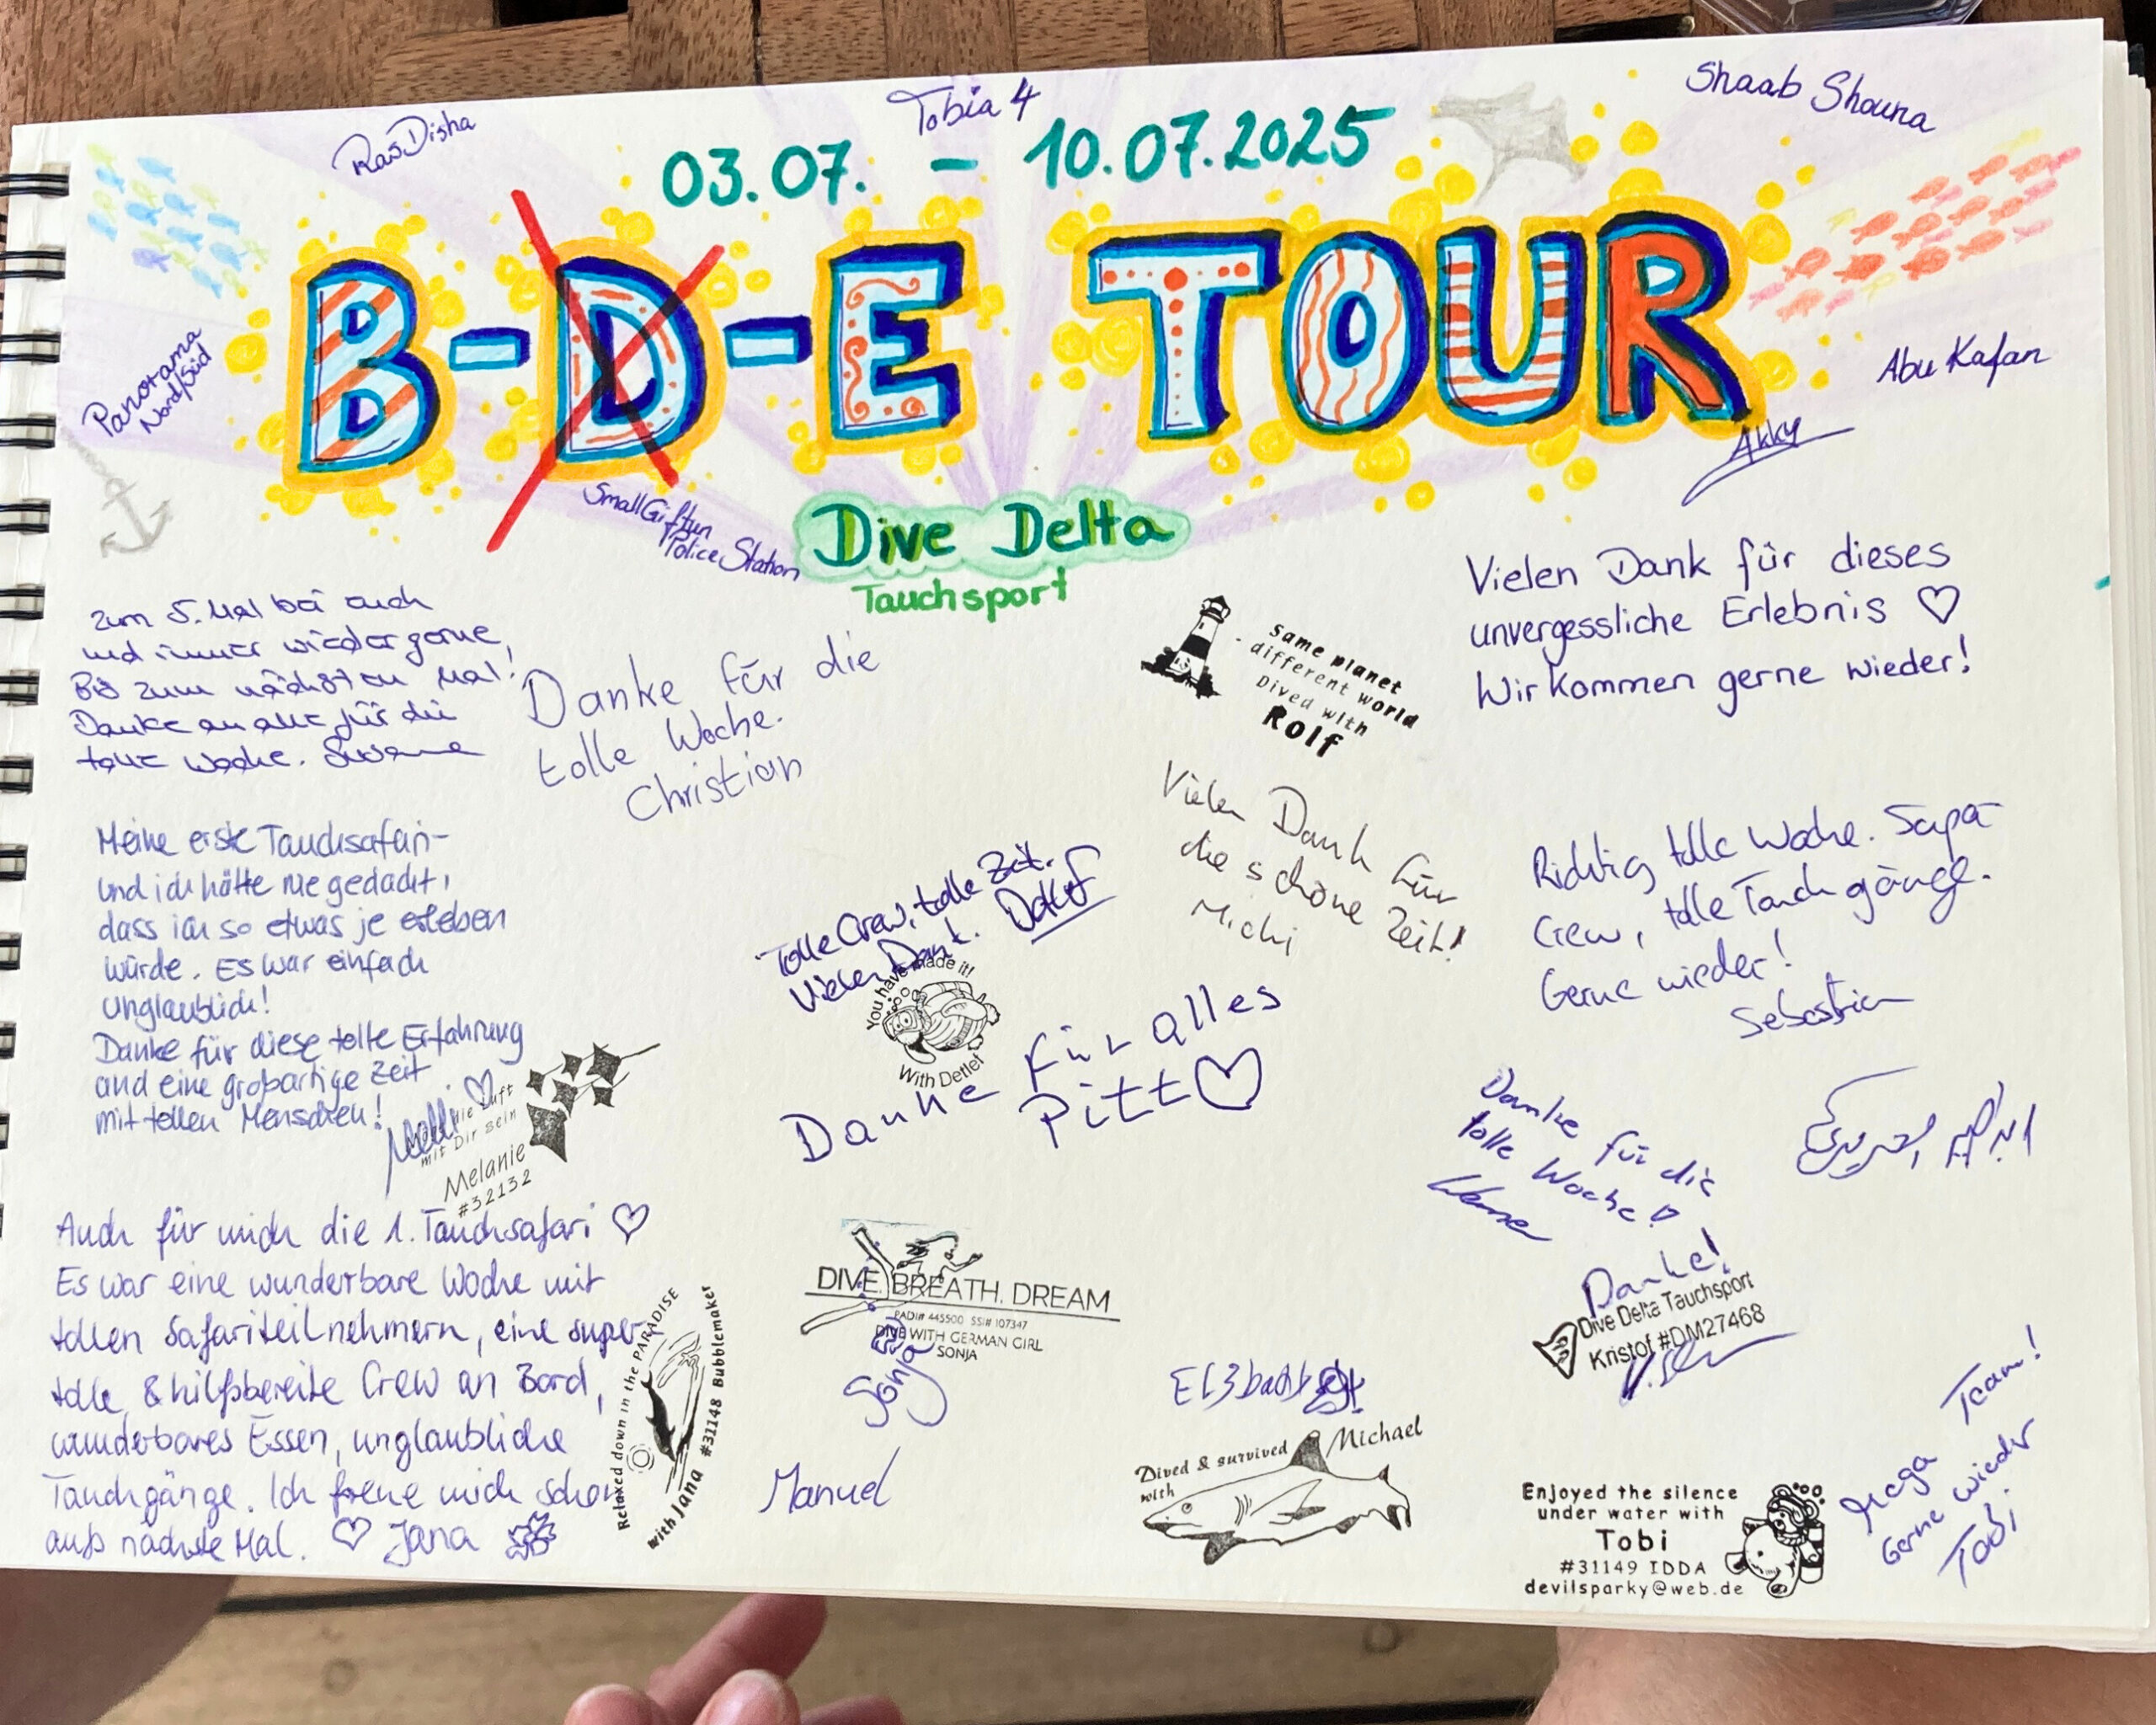 Ras Disha
Tobia 4
Shaab Shouna
03.07. - 10.07.2025
B-D-E TOUR
Panorama
Nord/Süd
Abu Kafan
Akky
Small Giftun
Police Station
Dive Delta
Tauchsport
Zum 5. Mal bei euch
und immer wieder gerne,
Bis zum nächsten Mal!
Danke an alle für die
tolle Woche. Susanne
Danke für die
tolle Woche.
Christian
Same planet
- different world
Dived with
Rolf
Vielen Dank für
die schöne Zeit!
Michi
Vielen Dank für dieses
unvergessliche Erlebnis ♡
Wir kommen gerne wieder!
Meine erste Tauchsafari -
und ich hätte nie gedacht,
dass ich so etwas je erleben
würde. Es war einfach
unglaublich!
Danke für diese tolle Erfahrung
und eine großartige Zeit
mit tollen Menschen! ♡
Melli
die Luft
mit Dir sein
Melanie
#32132
Tolle Crew, tolle Zeit.
Vielen Dank. Detlef
You have made it!
With Detlef
Danke für alles
Pitt ♡
Richtig tolle Woche. Supa-
Crew, tolle Tauchgänge.
Gerne wieder!
Sebastian
Danke für die
tolle Woche!
Auch für mich die 1. Tauchsafari ♡
Es war eine wunderbare Woche mit
tollen Safariteilnehmern, eine super
tolle & hilfsbereite Crew an Bord,
wunderbares Essen, unglaubliche
Tauchgänge. Ich freue mich schon
aufs nächste Mal. ♡ Jana
Relaxed down in the PARADISE
with Jana #31148 Bubblemaker
DIVE. BREATH. DREAM
PADI# 445500 SSI# 107347
DIVE WITH GERMAN GIRL
SONJA
Sonja
Manuel
Dived & survived
with
Michael
Danke!
Dive Delta Tauchsport
Kristof #DM27468
Enjoyed the silence
under water with
Tobi
#31149 IDDA
devilsparky@web.de
Mega Team!
Gerne wieder
Tobi